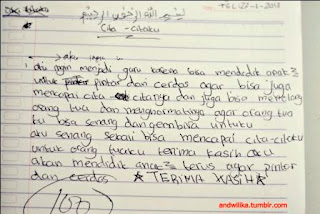 بسم الله الرحمن الرحيم
TGL 27-1-2013
Cita - Citaku
aku ingin menjadi guru karena bisa mendidik anak2
untuk pintar dan cerdas agar bisa juga
mencapai cita citanya dan juga bisa menolong
orang tua dan menghormatinya agar orang tua
ku bisa senang dan gembira untuku
aku senang sekali bisa mencapai cita-citaku
untuk orang tuaku terima kasih aku
akan mendidik anak2 terus agar pintar
dan cerdas ★TERIMA KASIH★
100
andwilika.tumblr.com